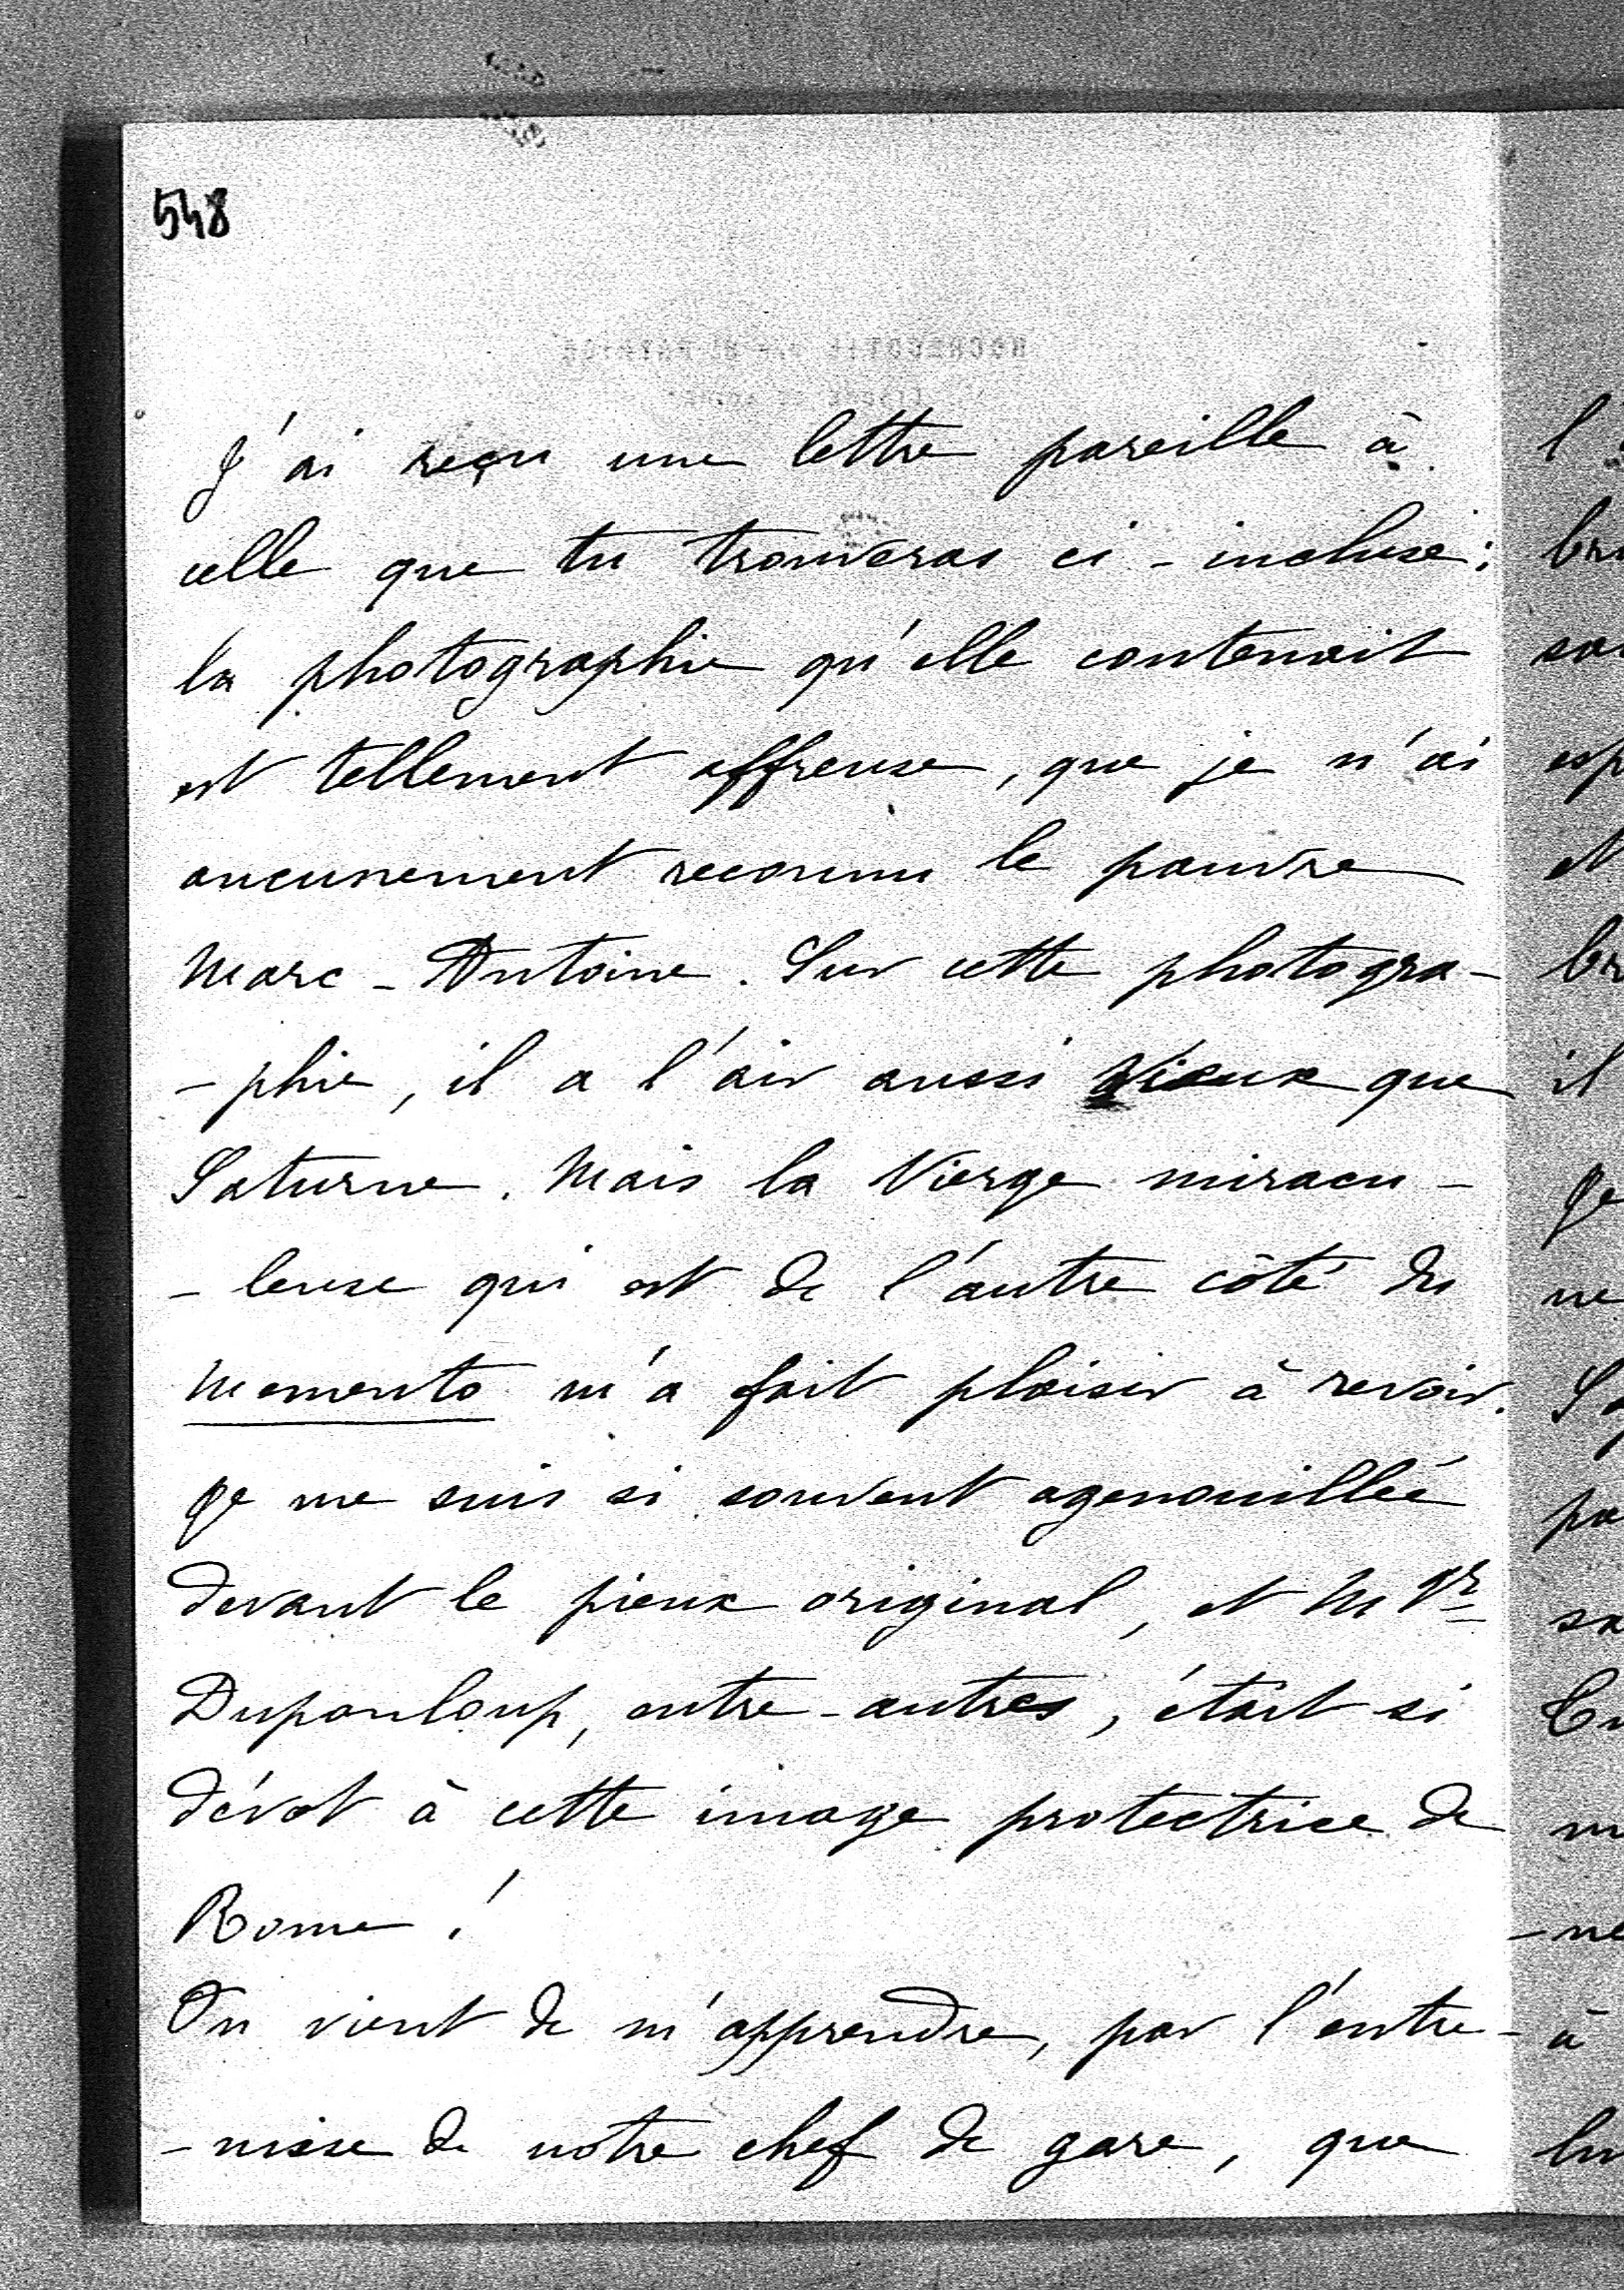 548
J'ai reçu une lettre pareille à
celle que tu trouveras ci-incluse;
la photographie qu'elle contenait
est tellement affreuse, que je n'ai
aucunement reconnu le pauvre
Marc-Antoine. Sur cette photogra-
-phie, il a l'air aussi vieux que
Saturne. Mais la Vierge miracu-
-leuse qui est de l'autre côté du
Memento m'a fait plaisir à revoir.
Je me suis si souvent agenouillée
devant le pieux original, et Mgr
Dupanloup, entre-autres, était si
dévot à cette image protectrice de
Rome!
On vient de m'apprendre, par l'entre-
-misse de notre chef de gare, que